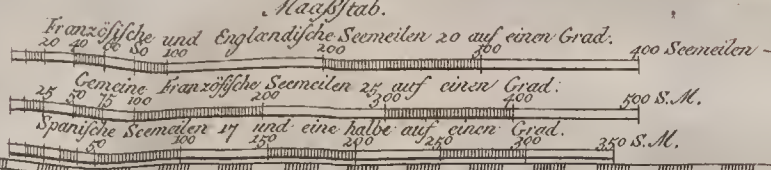 Maaßstab.
Französische und Englandische Seemeilen 20 auf einen Grad.
20 40 60 80 100 200 300 400 Seemeilen
Gemeine Französische Seemeilen 25 auf einen Grad.
25 50 75 100 200 300 400 500 S.M.
Spanische Seemeilen 17 und eine halbe auf einen Grad.
50 100 150 200 250 300 350 S.M.